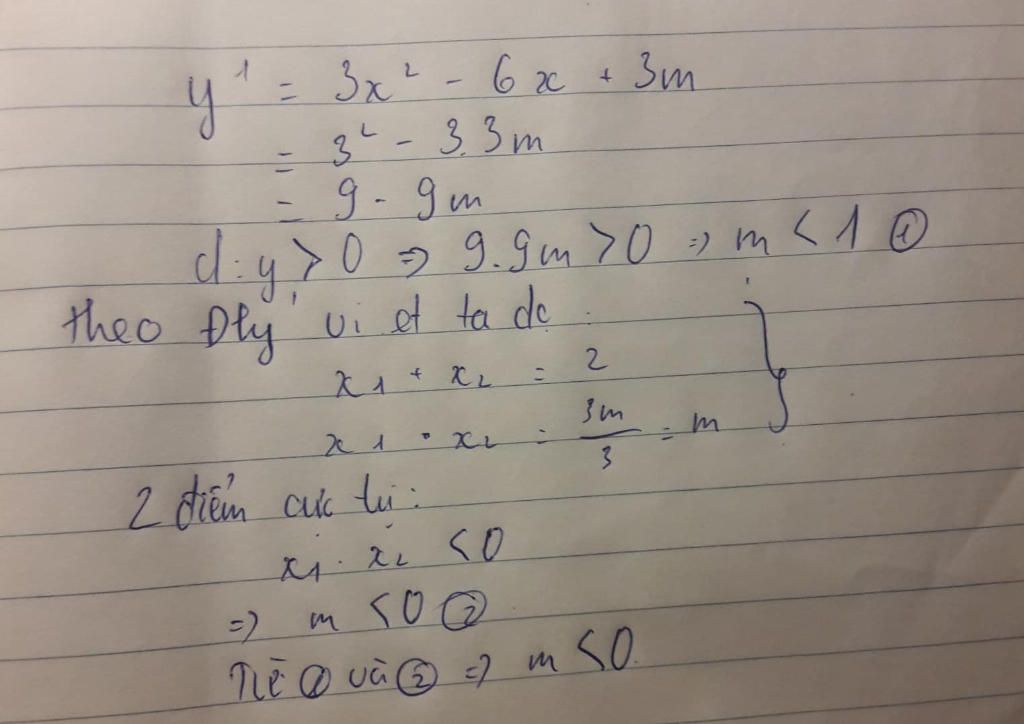 y' = 3x² - 6x + 3m
= 3² - 3.3m
= 9 - 9m
d: y > 0 => 9.9m > 0 => m < 1 ①
theo Đlý vi et ta dc :
x1 + x2 = 2
x1 . x2 = 3m/3 = m }
2 điểm cực trị :
x1 . x2 < 0
=> m < 0 ②
Từ ① và ② => m < 0